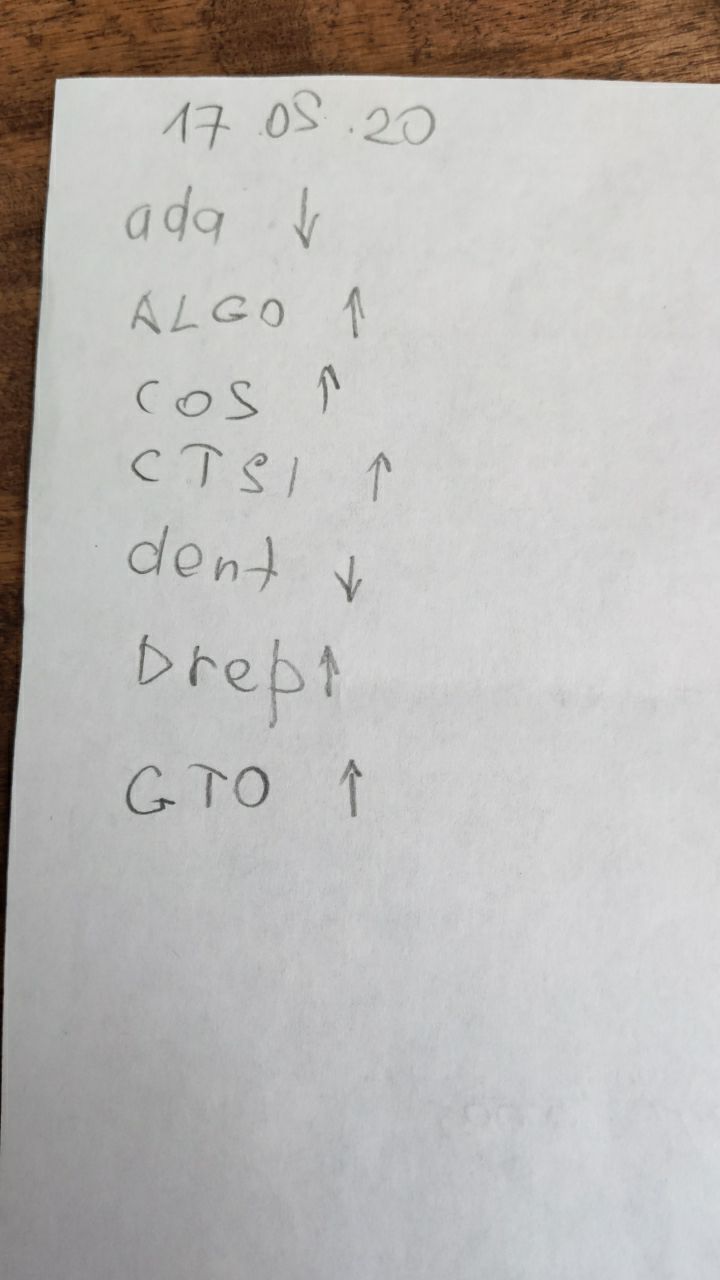 17.05.20
ada ↓
ALGO ↑
COS ↑
CTSI ↑
dent ↓
Drep ↑
GTO ↑